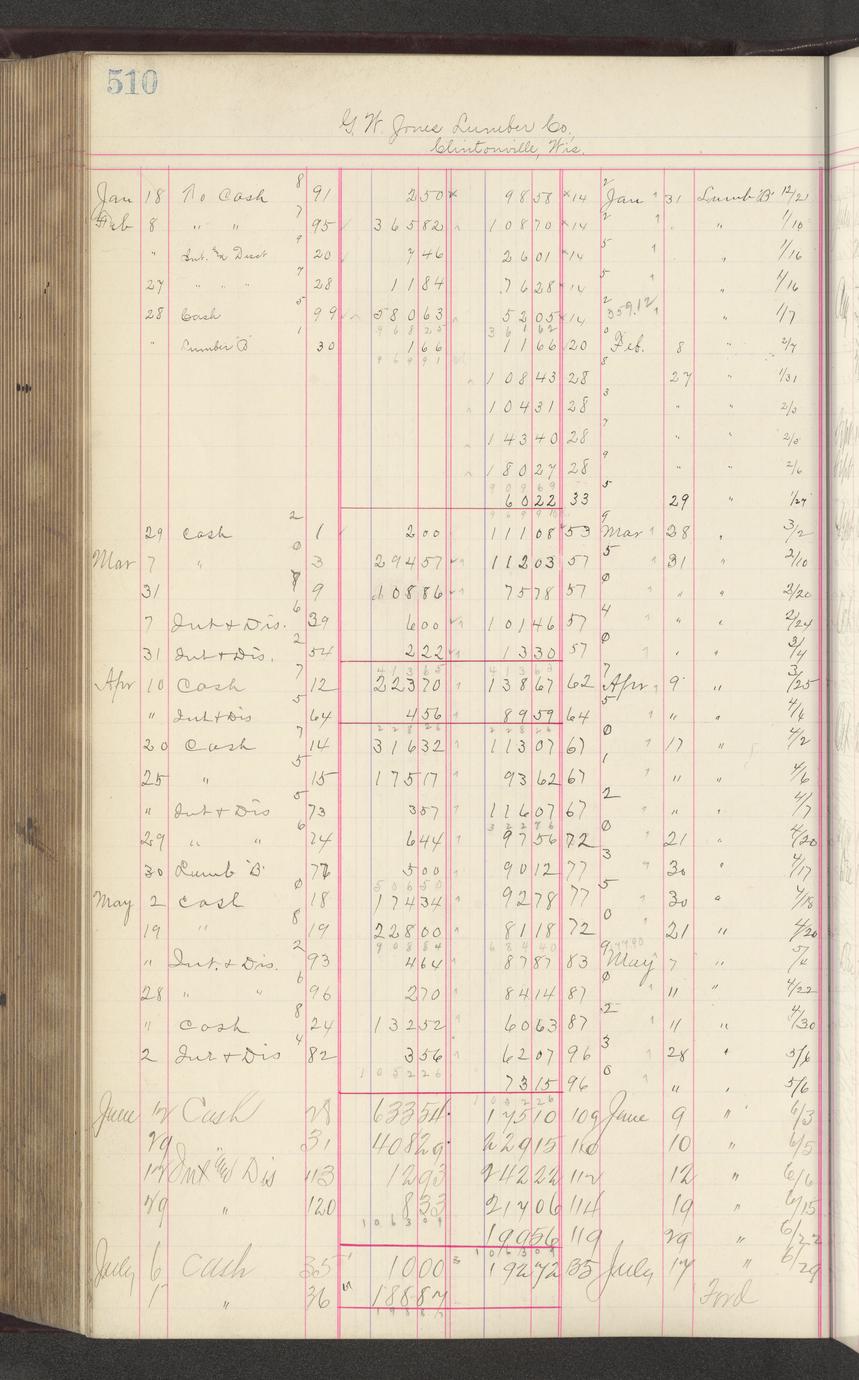 510
G. W. Jones Lumber Co.,
Clintonville, Wis.
Jan 18 To Cash 8 91 250 9858 14 2 Jan 31 Lumb "B" 12/21
Feb 8 " " 7 95 36582 10870 14 2 " 1/10
" Int. & Disct 9 20 746 2601 14 5 " 1/16
27 " " " 7 28 1184 7628 14 5 " 1/16
28 Cash 5 99 58063 5205 14 2 359.12 " 1/7
96825 36162
" Lumber "B" 1 30 166 1166 20 0 Feb. 8 " 2/7
96991
10843 28 8 27 " 1/31
10431 28 3 " " 2/3
14340 28 7 " "
18027 28 9 " " 2/6
90969
6022 33 5 29 " 1/27
96991
29 Cash 2 1 200 11108 53 9 Mar 28 " 3/2
Mar 7 " 0 3 29457 11203 57 5 31 " 2/10
31 9 10886 7578 57 0 " " 2/20
7 Int & Dis. 6 39 600 10146 57 4 " " 2/24
31 Int & Dis. 2 54 222 1330 57 0 " " 3/4
41365 41365
Apr 10 Cash 7 12 22370 13867 62 7 Apr 9 " 3/25
" Int & Dis 5 64 456 8959 64 5 " " 4/6
22826 22826
20 Cash 7 14 31632 11307 67 0 17 " 4/2
25 " 5 15 17517 9362 67 1 " " 4/6
" Int & Dis 5 73 357 11607 67 2 " " 4/7
32276
29 " " 6 74 644 9756 72 0 21 " 4/20
30 Lumb "B" 77 500 9012 77 3 30 " 4/17
50650
May 2 Cash 0 18 17434 9278 77 5 30 " 4/18
19 " 8 19 22800 8118 72 0 21 " 4/20
90884 68440
" Int. & Dis. 2 93 464 8787 83 9 May 7 " 5/4
28 " " 6 96 270 8414 87 0 " " 4/22
" Cash 8 24 13252 6063 87 2 " " 4/30
2 Int & Dis 4 82 356 6207 96 3 28 " 5/6
105226
7315 96 0 " " 5/6
105226
June 12 Cash 28 63354 17510 109 June 9 " 6/3
29 31 40829 22915 110 10 " 6/5
12 Int & Dis 113 1293 24222 112 12 " 6/6
29 " 120 833 21706 114 19 " 6/15
106309
19956 119 29 " 6/22
106309
July 6 Cash 35 1000 19272 35 July 17 " 6/29
" 36 18887 Ford
19887